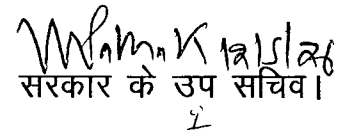 12/5/26
सरकार के उप सचिव।